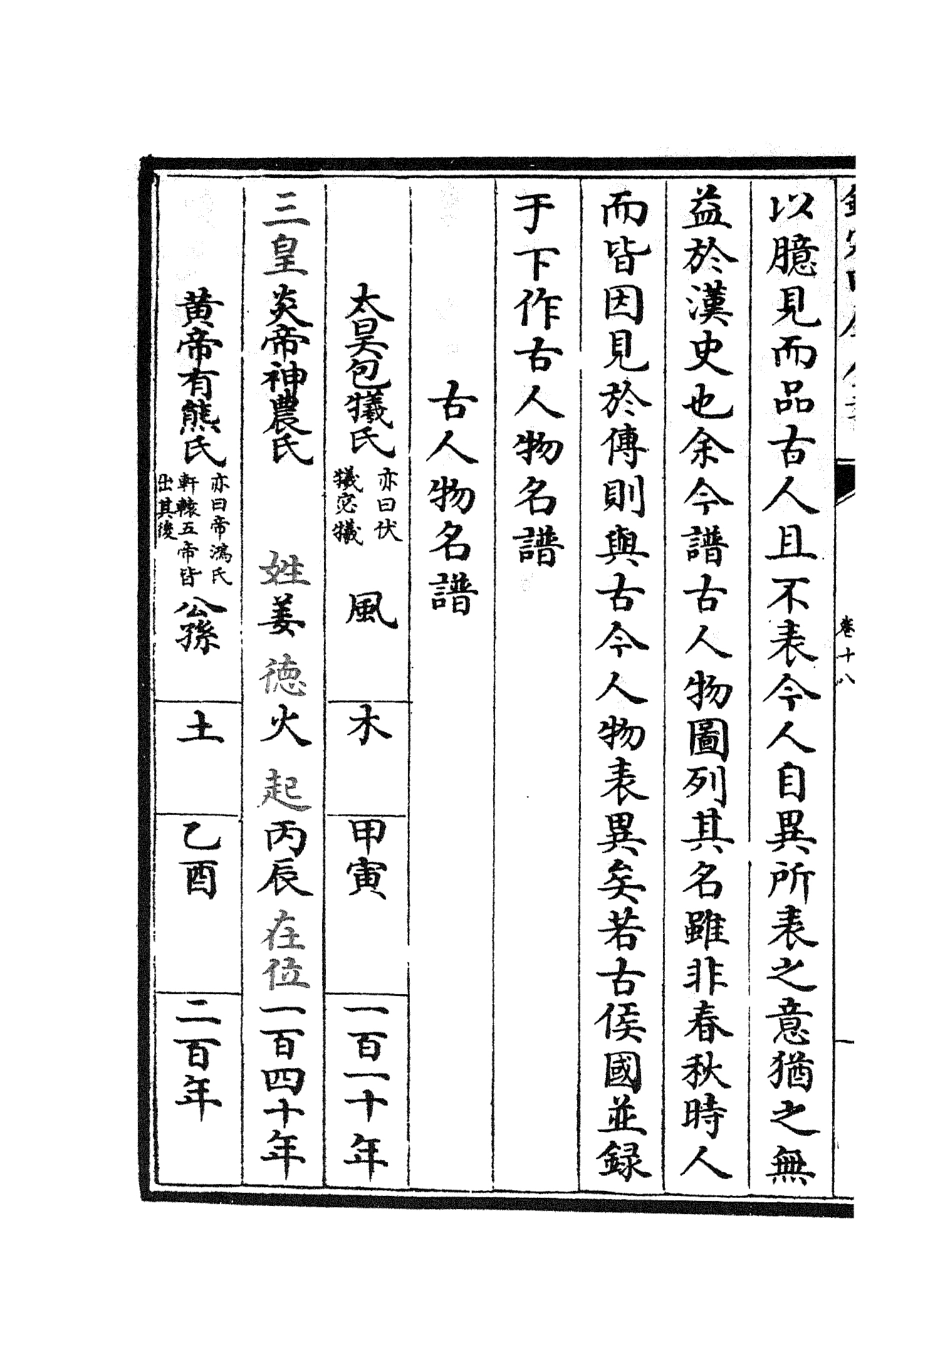 卷十八
一
以臆見而品古人且不表今人自異所表之意猶之無
益於漢史也余今譜古人物圖列其名雖非春秋時人
而皆因見於傳則與古今人物表異矣若古侯國並録
于下作古人物名譜
古人物名譜
太昊包犧氏 亦曰伏
犧宓犧 風 木 甲寅 一百一十年
三皇炎帝神農氏 姓姜 德火 起丙辰 在位一百四十年
黄帝有熊氏 亦曰帝鴻氏
軒轅五帝皆
出其後 公孫 土 乙酉 二百年